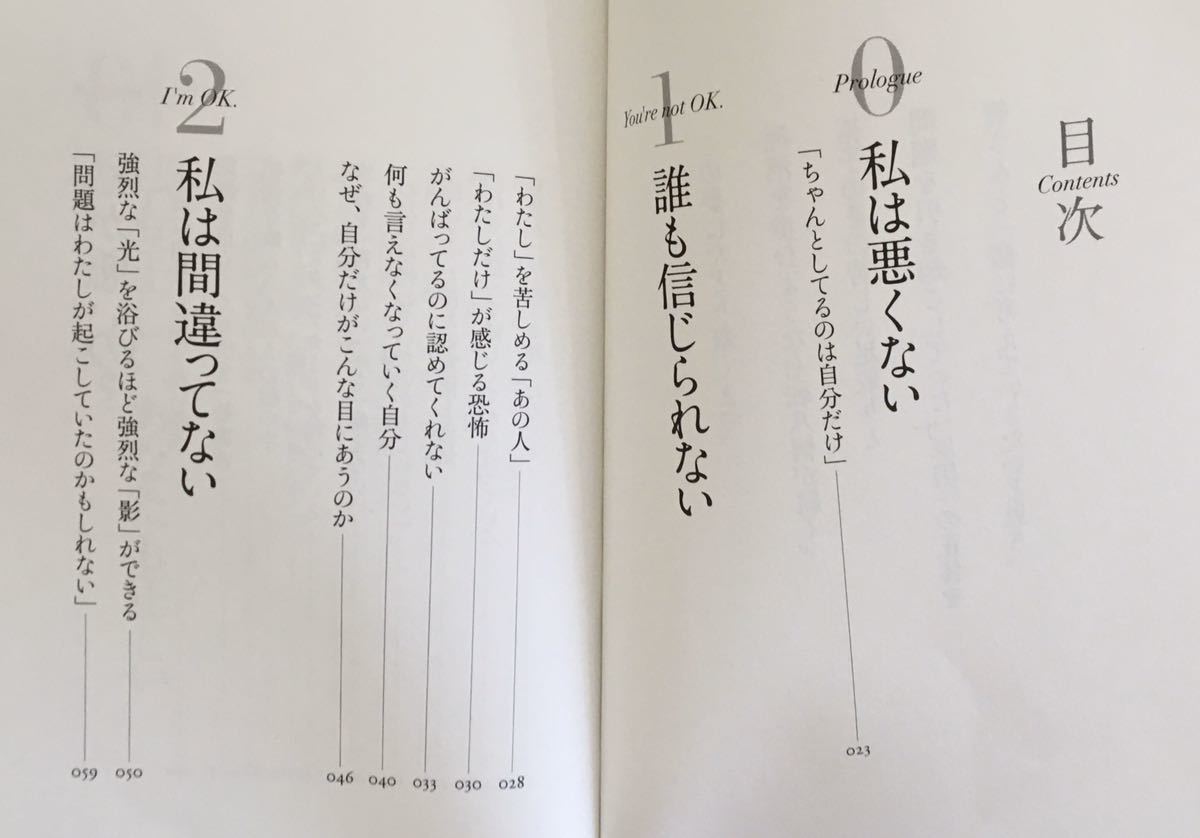 目次
Contents
0
Prologue
私は悪くない
「ちゃんとしてるのは自分だけ」
023
1
You're not OK.
誰も信じられない
「わたし」を苦しめる「あの人」
028
「わたしだけ」が感じる恐怖
030
がんばってるのに認めてくれない
033
何も言えなくなっていく自分
040
なぜ、自分だけがこんな目にあうのか
046
2
I'm OK.
私は間違ってない
強烈な「光」を浴びるほど強烈な「影」ができる
050
「問題はわたしが起こしていたのかもしれない」
059